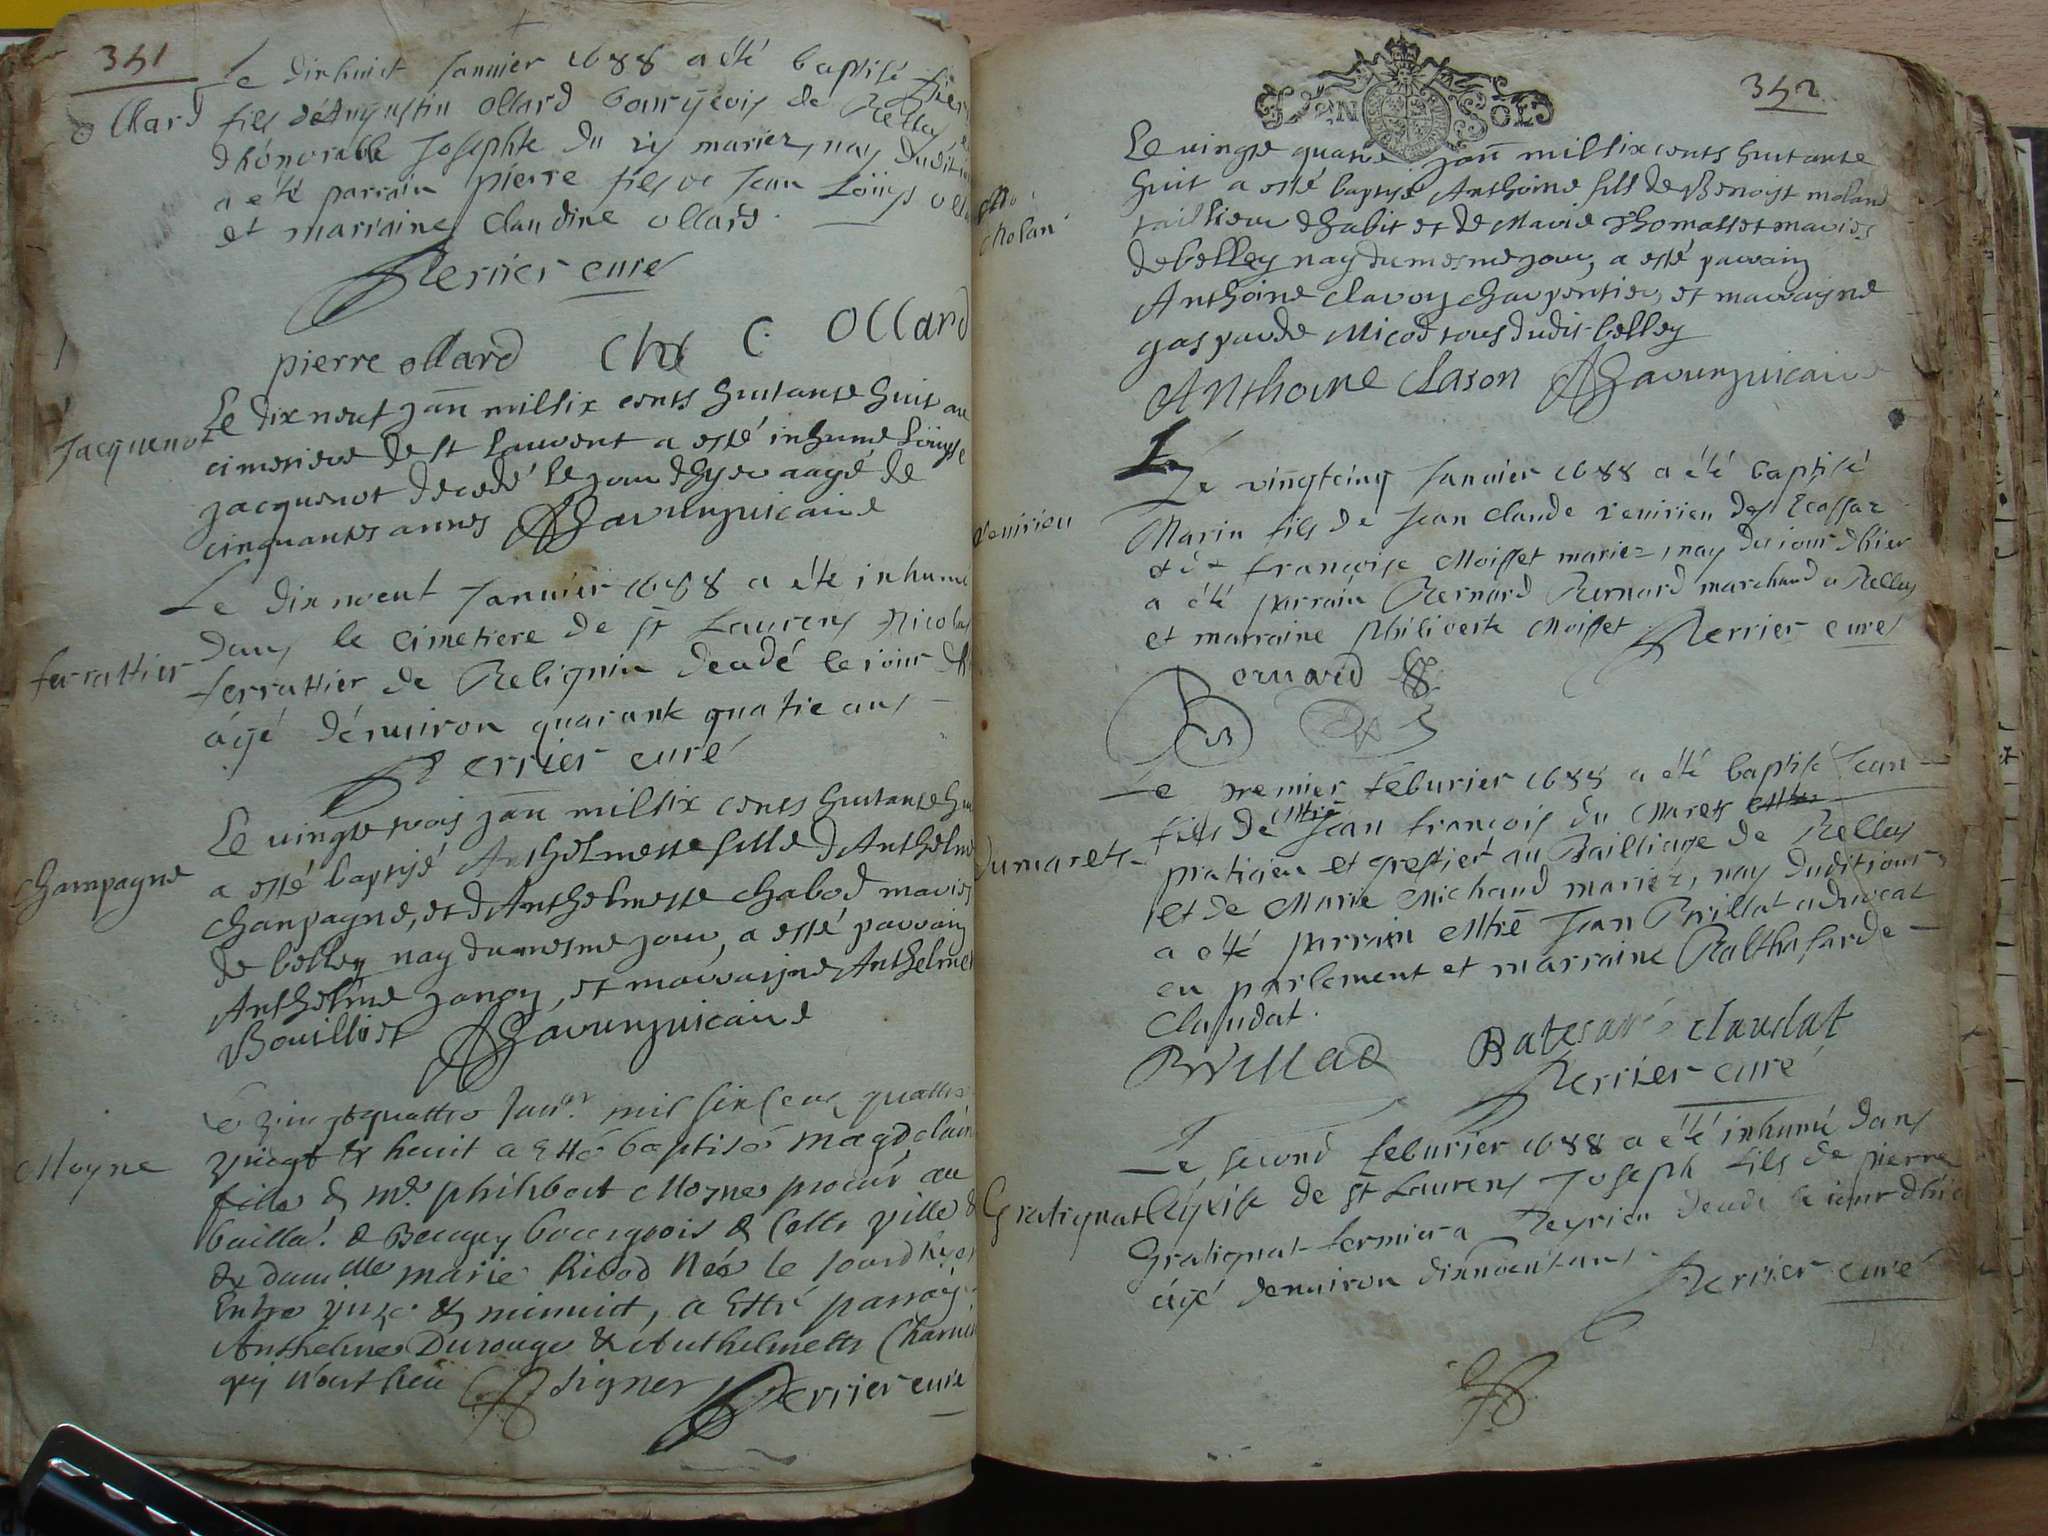 341
Ollard
Le dixhuict Januier 1688 a été baptisé Pier
fils d'Augustin Ollard bourgeois de Belley
d'honorable Josephte du mariez, nay dudit
a été parrain pierre fils de Jean Loüys Oll
et marraine Claudine Ollard.
Perrier curé
pierre ollard C. Ollard
Jacquenot
Le dix neuf Jan millsix cents huitante huit au
cimetiere de st Laurent a esté inhumé Loüys
Jacquenot decedé le jour d'hyer aagé de
cinquantes annes vicaire
ferrattier
Le dix neuf Januier 1688 a été inhumé
dans le cimetiere de st Laurens Nicolas
ferrattier de Belignin decadé le iour d'hi
âgé d'enuiron quarante quatre ans
Perrier curé
Champagne
Le vingte trois Jan millsix cents huitante hui
a esté baptisé Anthelmette fille d'Anthelme
Champagne, et d'Anthelmette Chabod maries
de belley nay du mesme jour, a esté parrain
Anthelme Janoy, et marraigne Anthelmet
Bouilliet vicaire
Moyne
Le vingtquattre Januer mil six cent quattre
vingt & huict a esté baptisée Magdelain
fille de Me philibert Moyne procur au
bailla. de Beugey bourgeois de cette ville &
de damlle marie Ricod Née le jourd'hyer
Entre vnze & minuict, a esté parray
Anthelme Durouge & Anthelmette Charui
qui n'ont sceu signer Perrier curé
342
DEN SOLS
Molan
Le vingte quatre Jan millsix cents huitante
huit a esté baptisé Anthoine fils de Benoist molan
taillieur d'habit et de Marie Thomasset maries
de belley nay du mesme jour, a esté parrain
Anthoine Clavoy charpentier, et marraigne
gasparde Micod tous dudit belley
Anthoine Clason vicaire
Venirieu
Le vingtcinq Januier 1688 a été baptisé
Marin fils de Jean Claude Venirieu des Ecassaz
et de francoise Moisset mariez, nay du iour d'hier
a été parrain Bernard Bernard marchand a Belley
et marraine Philiberte Moisset. Perrier curé
Bernard
Dumarets
Le premier feburier 1688 a été baptisé Jean
fils de Mtre Jean francois du Marets
praticien et greffier au Bailliage de Belley
et de Marie Michaud mariez, nay dudit iour
a été parrain Mtre Jean Brillat aduocat
en parlement et marraine Balthasarde
Claudat.
Brillad Batesarde claudat
Perrier curé
Gratignat
Le second feburier 1688 a été inhumé dans
l'église de st Laurens Joseph fils de pierre
Gratignat fermier a Peyrieu decadé le iour d'hier
âgé denuiron dixneuf ans
Perrier curé